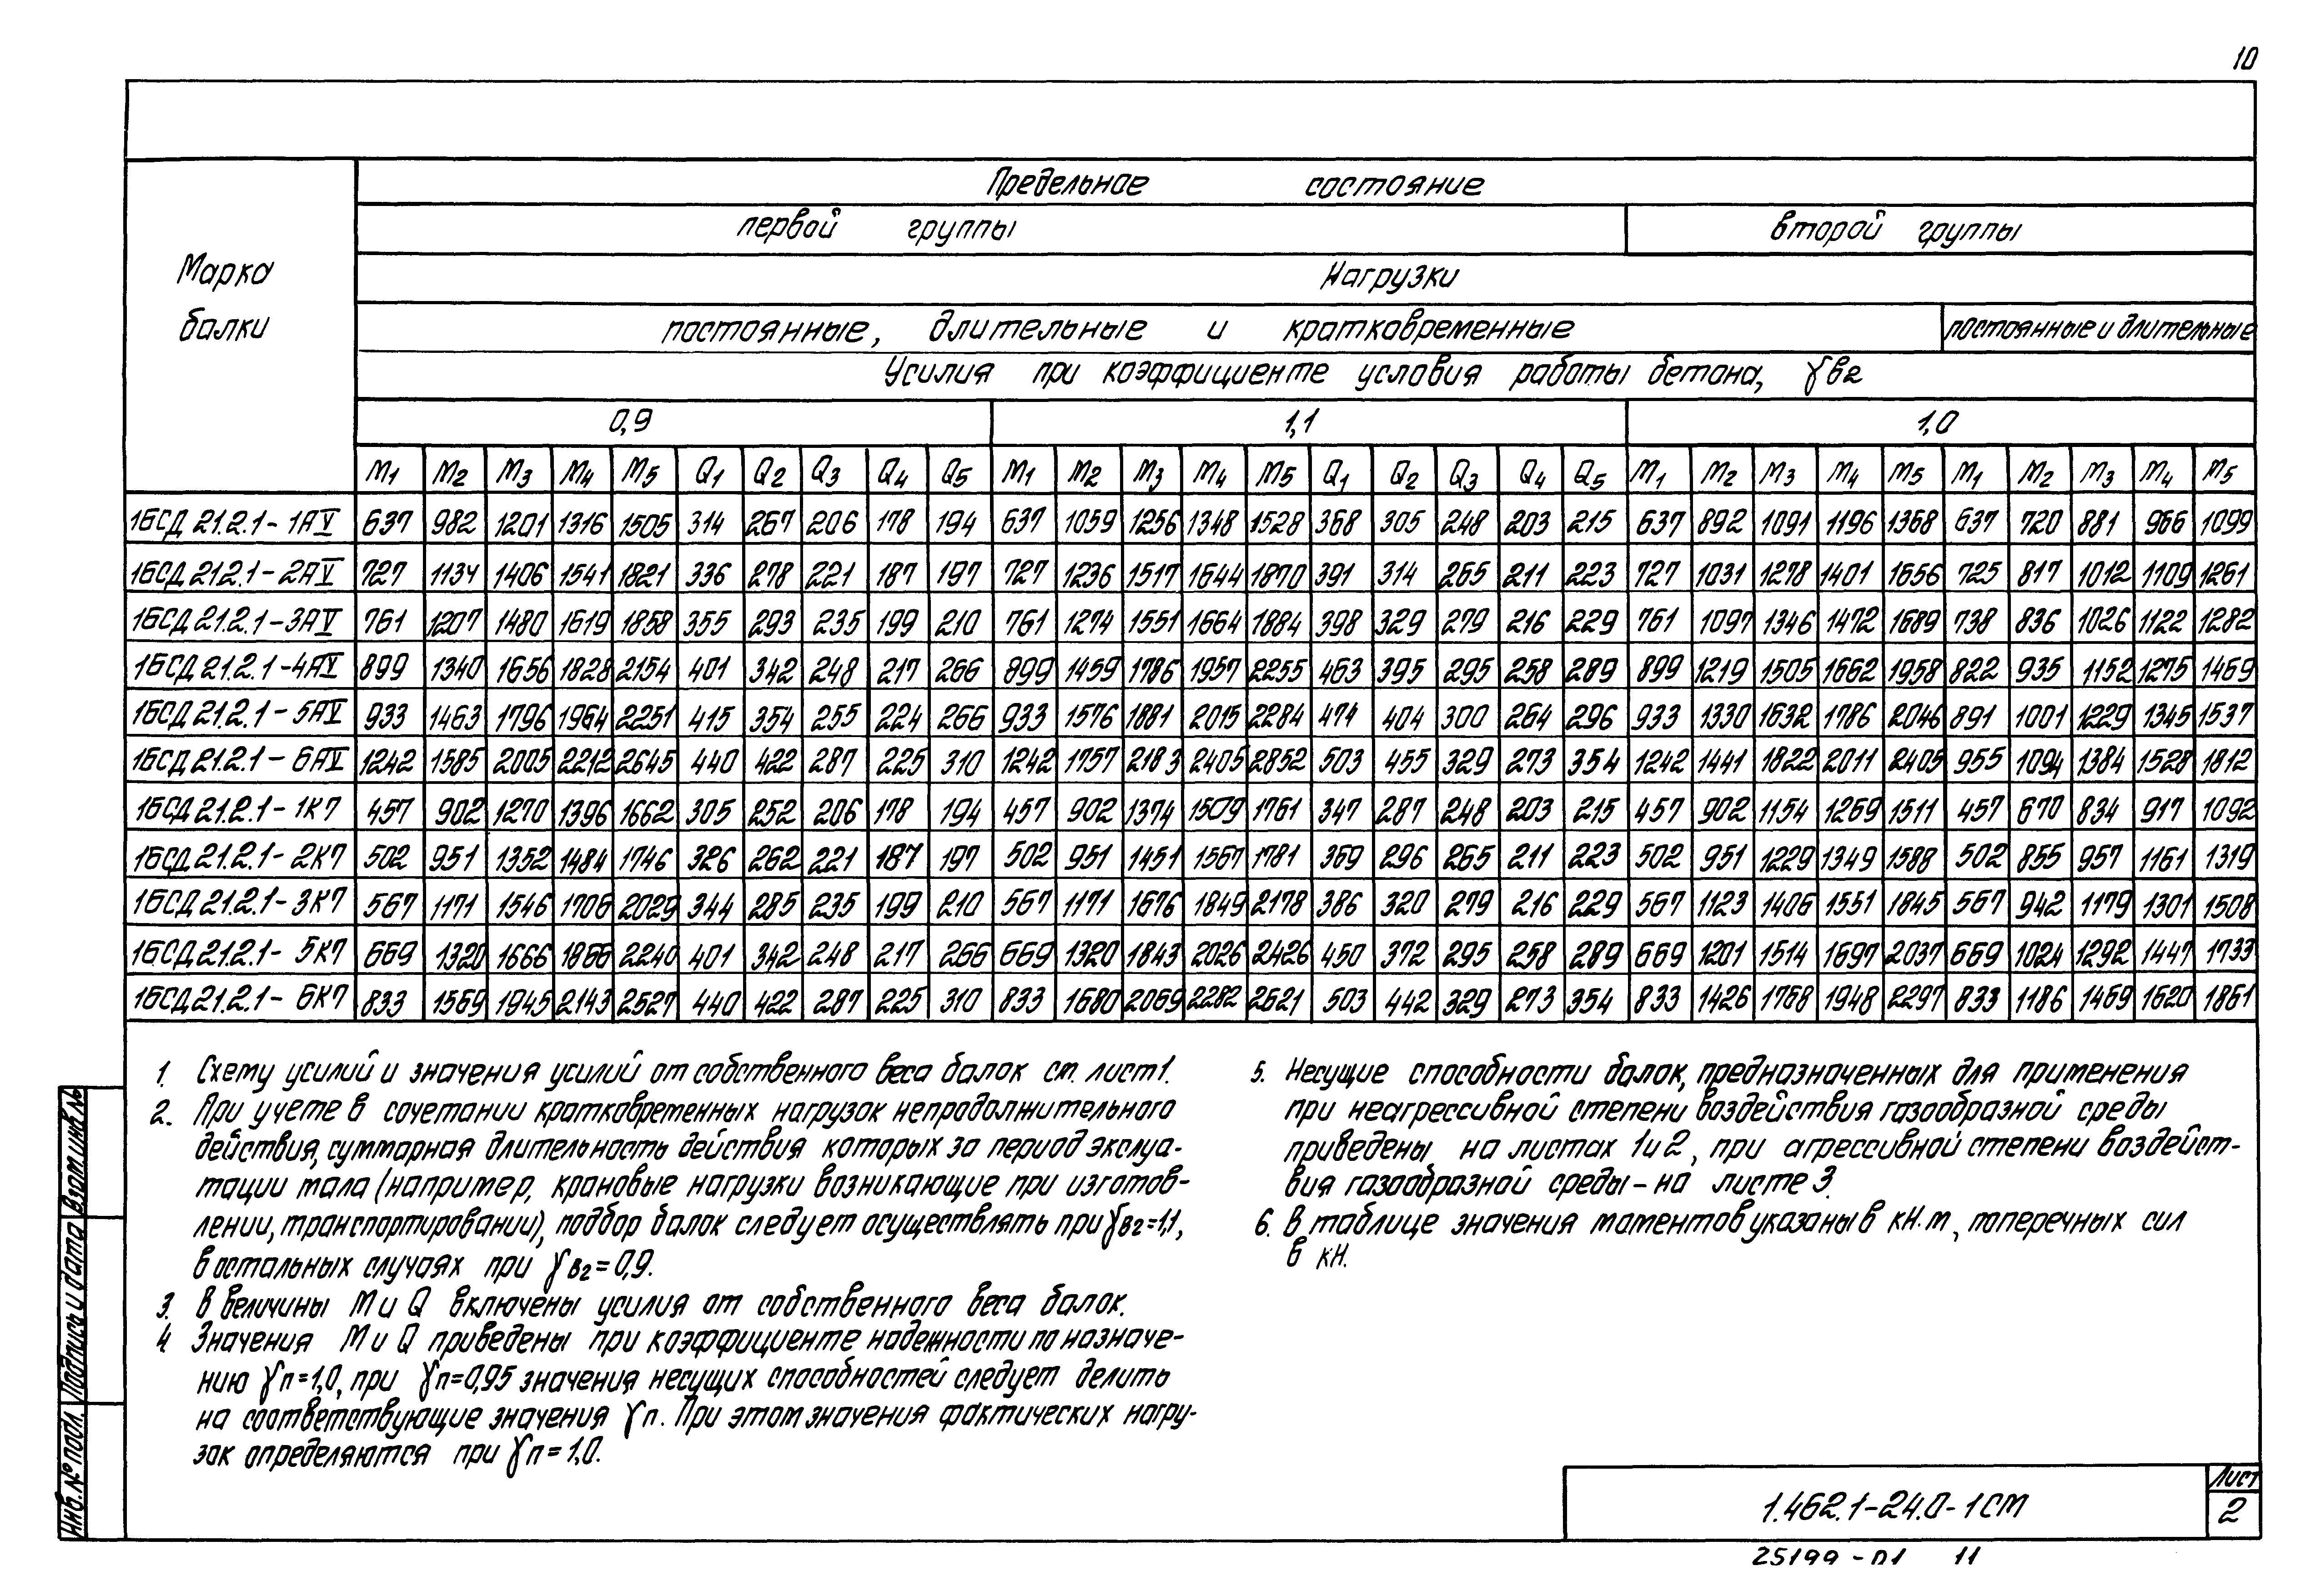 10
Предельное состояние
первой группы второй группы
Марка балки
Нагрузки
постоянные, длительные и кратковременные постоянные и длительные
Усилия при коэффициенте условия работы бетона, γв2
0,9 1,1 1,0
М1 М2 М3 М4 М5 Q1 Q2 Q3 Q4 Q5 М1 М2 М3 М4 М5 Q1 Q2 Q3 Q4 Q5 М1 М2 М3 М4 М5 М1 М2 М3 М4 М5
1БСД 21.2.1-1АV 637 982 1201 1316 1505 314 267 206 178 194 637 1059 1256 1348 1528 368 305 248 203 215 637 892 1091 1196 1368 637 720 881 966 1099
1БСД 21.2.1-2АV 727 1134 1406 1541 1821 336 278 221 187 197 727 1236 1517 1644 1870 391 314 265 211 223 727 1031 1278 1401 1656 725 817 1012 1109 1261
1БСД 21.2.1-3АV 761 1207 1480 1619 1858 355 293 235 199 210 761 1274 1551 1664 1884 398 329 279 216 229 761 1097 1346 1472 1689 738 836 1026 1122 1282
1БСД 21.2.1-4АV 899 1340 1656 1828 2154 401 342 248 217 266 899 1459 1786 1957 2255 463 395 295 258 289 899 1219 1505 1662 1958 822 935 1152 1275 1469
1БСД 21.2.1-5АV 933 1463 1796 1964 2251 415 354 255 224 266 933 1576 1881 2015 2284 474 404 300 264 296 933 1330 1632 1786 2046 891 1001 1229 1345 1537
1БСД 21.2.1-6АV 1242 1585 2005 2212 2645 440 422 287 225 310 1242 1757 2183 2405 2852 503 455 329 273 354 1242 1441 1822 2011 2405 955 1094 1384 1528 1812
1БСД 21.2.1-1К7 457 902 1270 1396 1662 305 252 206 178 194 457 902 1374 1509 1761 347 287 248 203 215 457 902 1154 1269 1511 457 670 834 917 1092
1БСД 21.2.1-2К7 502 951 1352 1484 1746 326 262 221 187 197 502 951 1451 1567 1781 369 296 265 211 223 502 951 1229 1349 1588 502 855 957 1161 1319
1БСД 21.2.1-3К7 567 1171 1546 1706 2029 344 285 235 199 210 567 1171 1676 1849 2178 386 320 279 216 229 567 1123 1406 1551 1845 567 942 1179 1301 1508
1БСД 21.2.1-5К7 669 1320 1666 1866 2240 401 342 248 217 266 669 1320 1843 2026 2426 450 372 295 258 289 669 1201 1514 1697 2037 669 1024 1292 1447 1733
1БСД 21.2.1-6К7 833 1569 1945 2143 2527 440 422 287 225 310 833 1680 2069 2282 2621 503 442 329 273 354 833 1426 1768 1948 2297 833 1186 1469 1620 1861
1. Схему усилий и значения усилий от собственного веса балок см. лист 1.
2. При учете в сочетании кратковременных нагрузок непродолжительного
действия, суммарная длительность действия которых за период эксплуа-
тации мала (например, крановые нагрузки возникающие при изготов-
лении, транспортировании), подбор балок следует осуществлять при γв2=1,1,
в остальных случаях при γв2=0,9.
3. В величины М и Q включены усилия от собственного веса балок.
4 Значения М и Q приведены при коэффициенте надежности по назначе-
нию γп=1,0, при γп=0,95 значения несущих способностей следует делить
на соответствующие значения γп. При этом значения фактических нагру-
зок определяются при γп=1,0.
5. Несущие способности балок, предназначенных для применения
при неагрессивной степени воздействия газообразной среды
приведены на листах 1 и 2, при агрессивной степени воздейст-
вия газообразной среды - на листе 3.
6. В таблице значения моментов указаны в кН.м, поперечных сил
в кН.
Инв. № подл. Подпись и дата Взам инв №
1.462.1-24.0-1СМ
Лист
2
25199-01 11